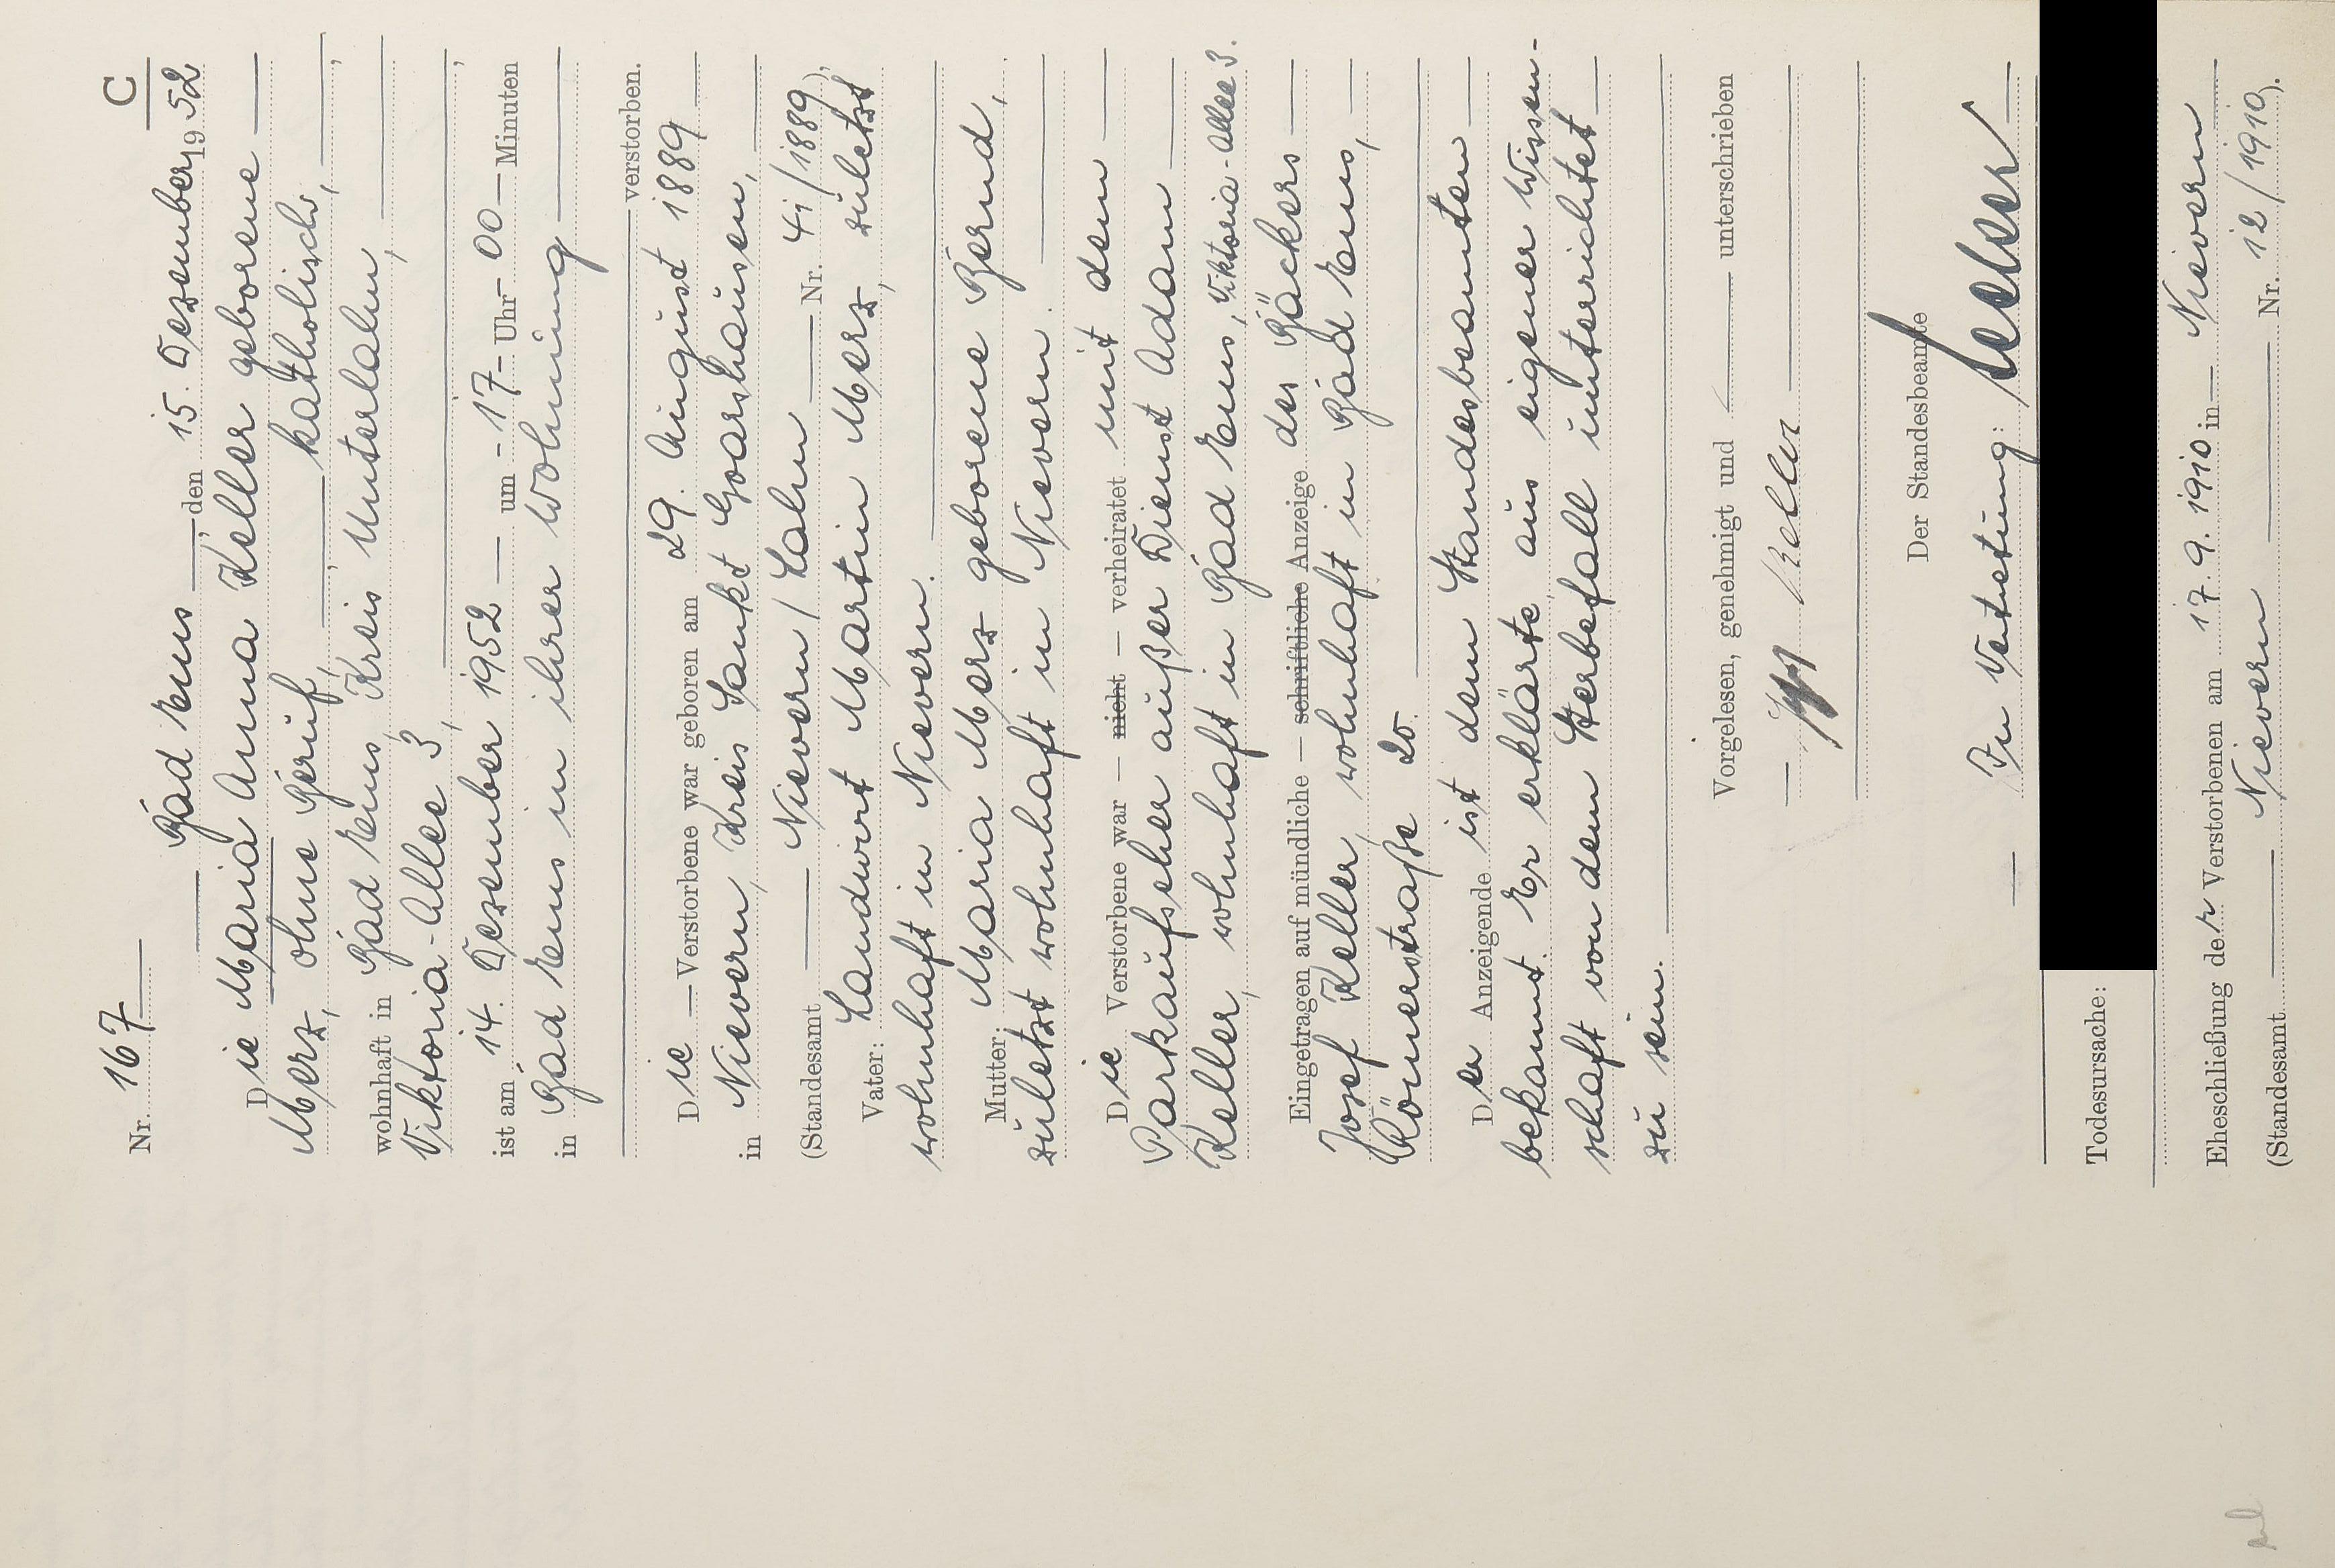 C
Nr. 167
Bad Ems, den 15. Dezember 1952
Die Maria Anna Keller geborene
Merz, ohne Beruf, katholisch,
wohnhaft in Bad Ems, Kreis Unterlahn,
Viktoria-Allee 3,
ist am 14. Dezember 1952 um - 17 - Uhr - 00 - Minuten
in Bad Ems in ihrer Wohnung
verstorben.
Die Verstorbene war geboren am 29. August 1889
in Nievern, Kreis Sankt Goarshausen,
(Standesamt Nievern / Lahn Nr. 41/1889),
Vater: Landwirt Martin Merz, zuletzt
wohnhaft in Nievern.
Mutter: Maria Merz geborene Bernd,
zuletzt wohnhaft in Nievern.
Die Verstorbene war — nicht — verheiratet mit dem
Parkaufseher außer Dienst Adam
Keller, wohnhaft in Bad Ems, Viktoria-Allee 3.
Eingetragen auf mündliche — schriftliche Anzeige des Bäckers
Josef Keller, wohnhaft in Bad Ems,
Römerstraße 20.
Der Anzeigende ist dem Standesbeamten
bekannt. Er erklärte, aus eigener Wissen-
schaft von dem Sterbefall unterrichtet
zu sein.
Vorgelesen, genehmigt und unterschrieben
Keller
Der Standesbeamte
In Vertretung:
Todesursache:
Eheschließung der Verstorbenen am 17. 9. 1910 in Nievern
(Standesamt Nievern Nr. 12/1910).